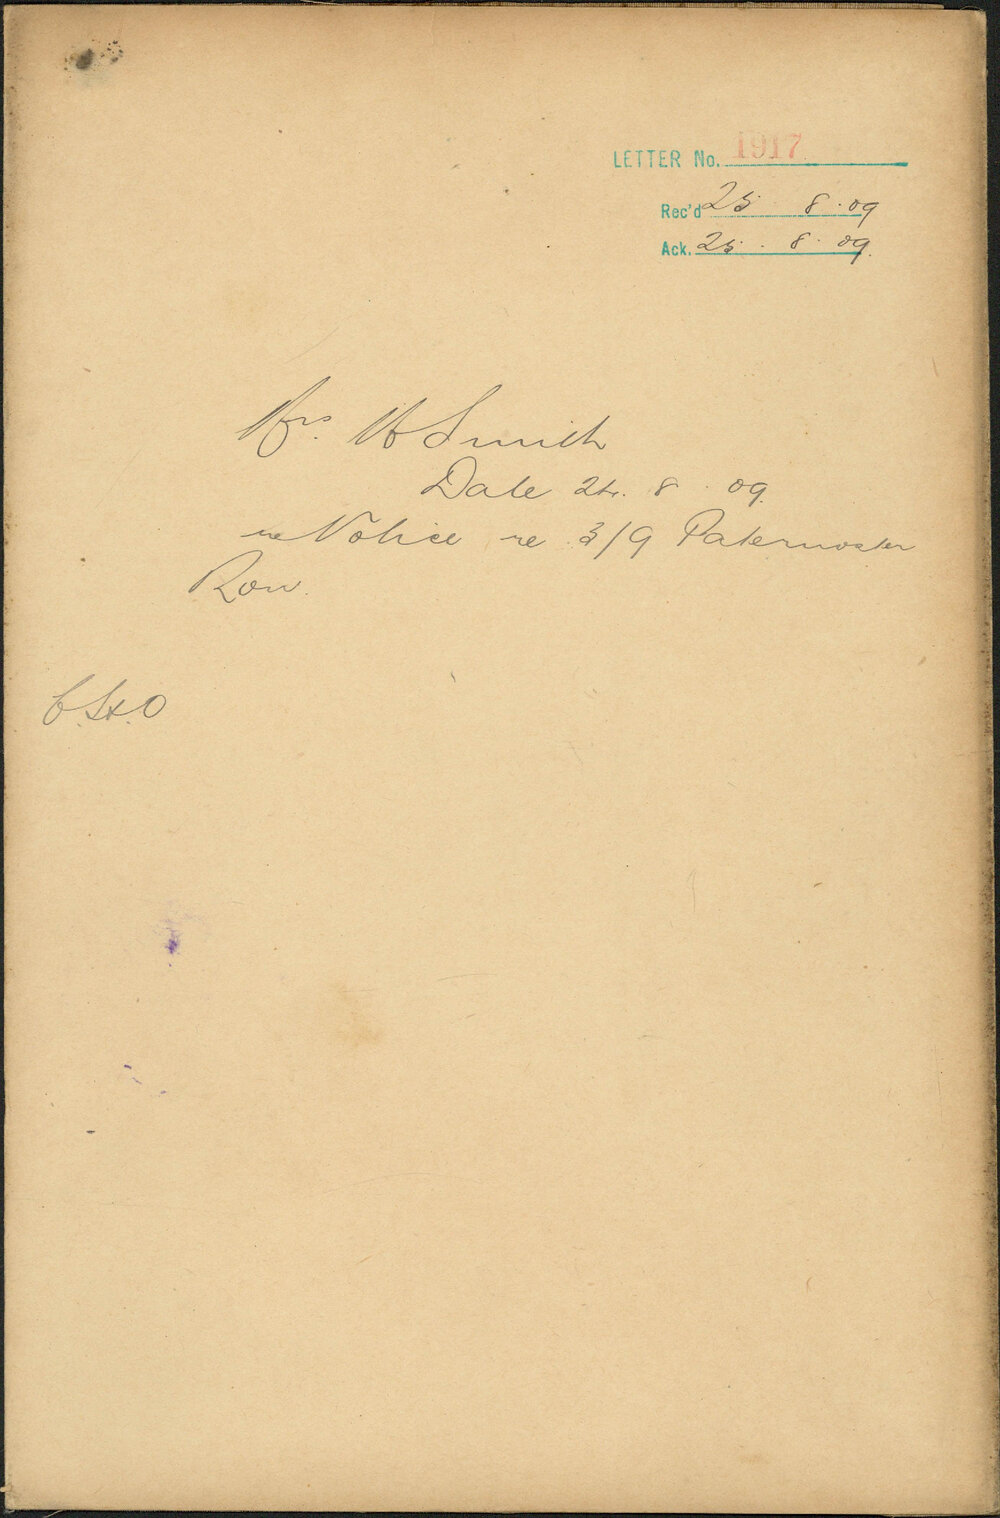 LETTER No. 1917
Rec'd 25 . 8 . 09
Ack. 25 . 8 . 09.
Mrs. W Smith
Date 24. 8 . 09.
re Notice re 3/9 Paternoster
Row.